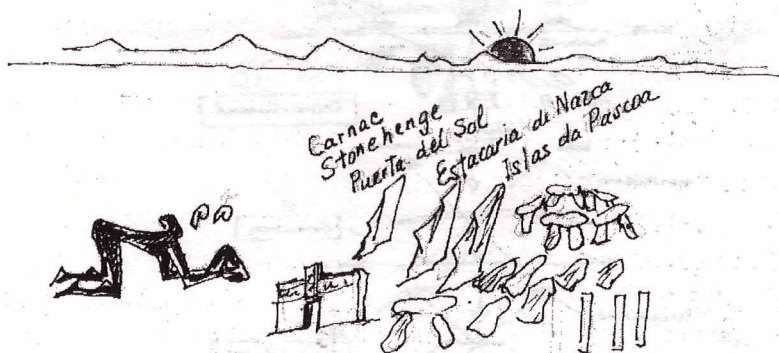 Carnac
Stonehenge
Puerta del Sol
Estacaria de Nazca
Islas da Pascoa